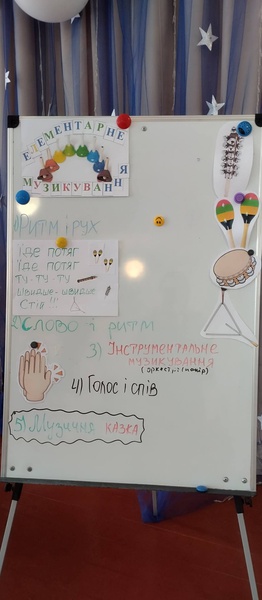 ЕЛЕМЕНТАРНЕ
МУЗИКУВАННЯ
1) Ритм і рух
Їде потяг
Їде потяг
Ту-ту-ту
Швидше-швидше
Стій!!!
2) Слово і ритм
3) Інструментальне
музикування
4) Голос і спів
5) Музична казка